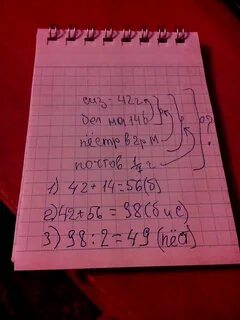 сиз - 42 г
бел на 14 б
пёстр в 2 р м
почтов г
1) 42 + 14 = 56 (б)
2) 42 + 56 = 98 (б и с)
3) 98 : 2 = 49 (пёст)